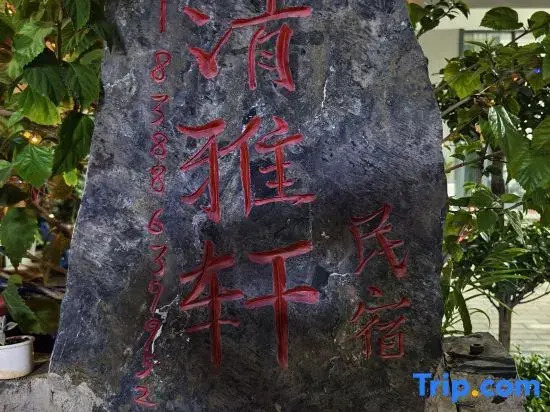 清雅轩
民宿
Trip.com